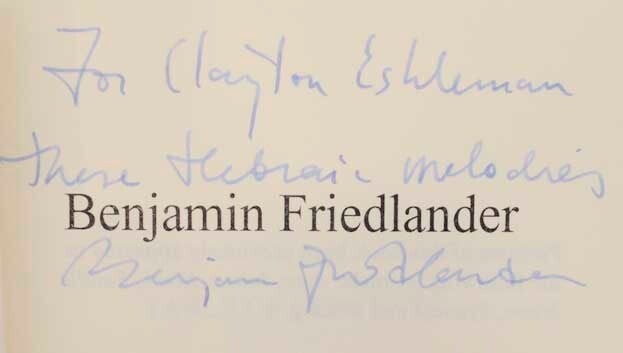 For Clayton Eshleman
these Hebraic melodies
Benjamin Friedlander
Benjamin Friedlander